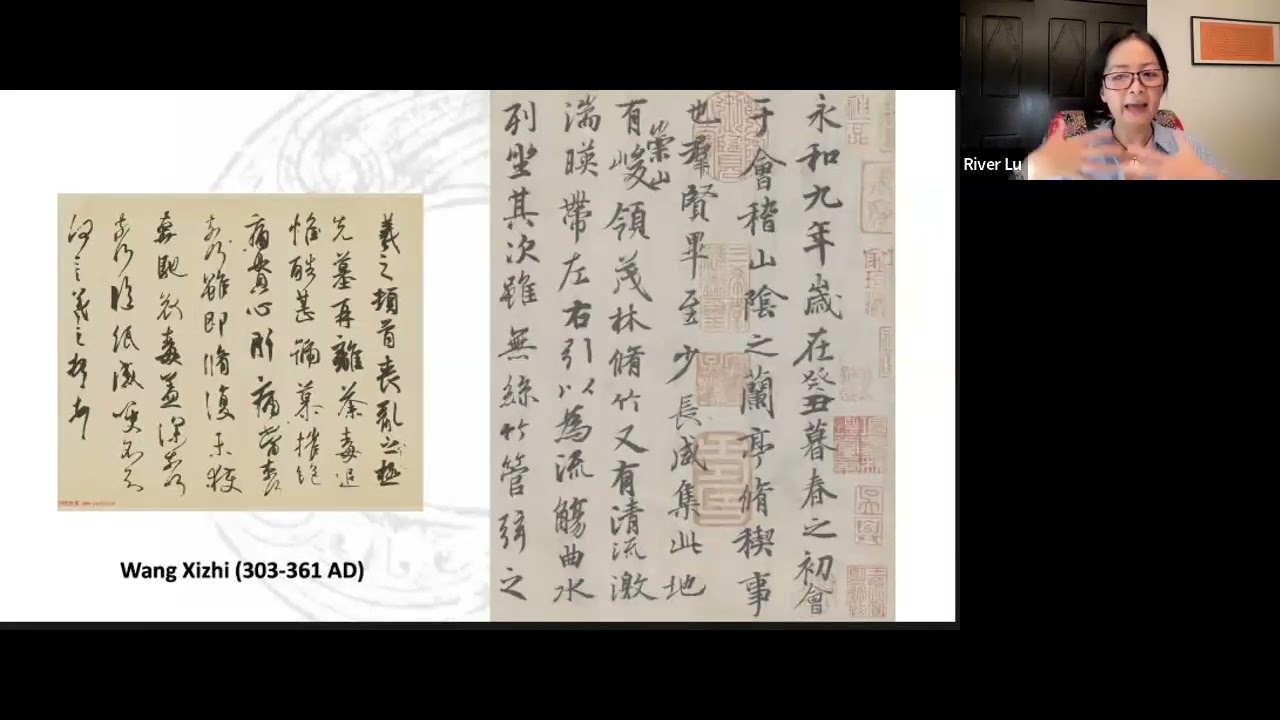 River Lu
羲之頓首喪亂之極
先墓再離荼毒追
惟酷甚號慕摧絕
痛貫心肝痛當奈
何奈何雖即脩復未獲
奔馳哀毒益深奈何
奈何臨紙感哽不知
何言羲之頓首
Wang Xizhi (303-361 AD)
永和九年歲在癸丑暮春之初會
于會稽山陰之蘭亭脩稧事
也羣賢畢至少長咸集此地
有崇山峻領茂林脩竹又有清流激
湍暎帶左右引以為流觴曲水
列坐其次雖無絲竹管弦之